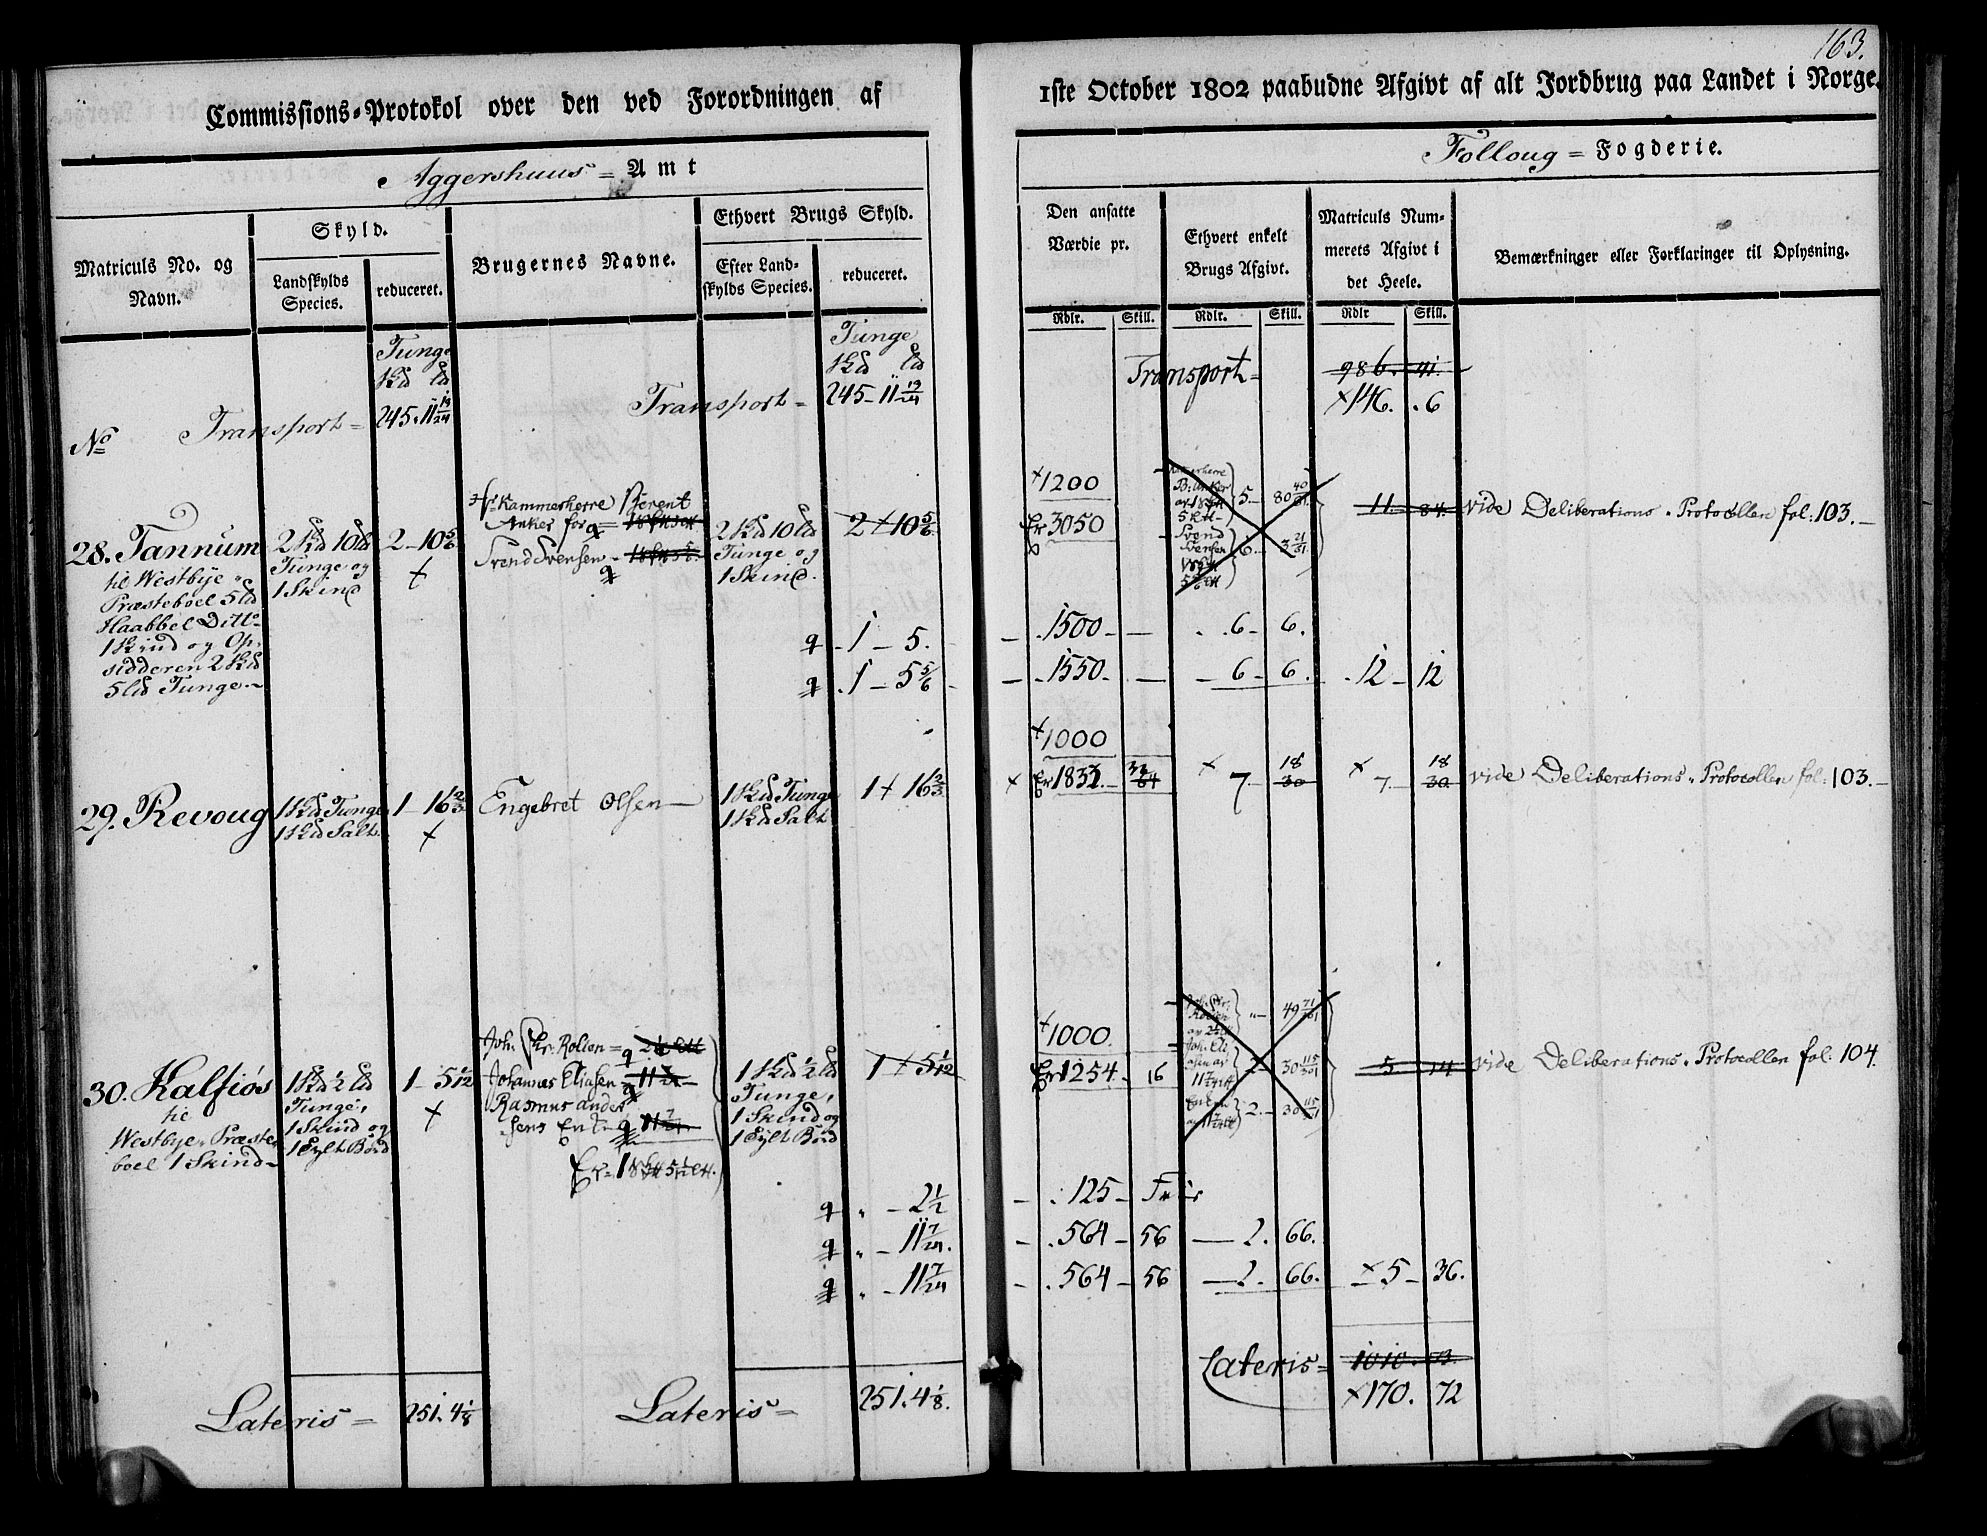 163.
Commissions-Protokol over den ved Forordningen af
1ste October 1802 paabudne Afgivt af alt Jordbrug paa Landet i Norge.
Aggershuus = Amt
Folloug = Fogderie.
Matriculs No. og
Navn.
Skyld.
Landskylds
Species.
reduceret.
Brugernes Navne.
Ethvert Brugs Skyld.
Efter Land-
skylds Species.
reduceret.
Den ansatte
Værdie pr.
Rdlr. Skill.
Ethvert enkelt
Brugs Afgivt.
Rdlr. Skill.
Matriculs Num-
merets Afgivt i
det Heele.
Rdlr Skill.
Bemærkninger eller Forklaringer til Oplysning.
Tunge
No Transport = 245.11 19/24
Tunge
Transport = 245-11 19/24
Transport = 986. 41.
×146. 6
28. Tannum
til Westbye
Præsteboel 5 ld
Haabbel Ditto
1 Skind og Op-
sidderen 2 Skd
5 ld Tunge.
2 Skd 10 ld
Tunge og
1 Skind
2-10 5/6
Kammerherre Berent
Anker for
Svend Svensen
2 Skd 10 ld
Tunge og
1 Skind.
2 + 10 5/6
+1200
Er 3050
11. 84.
vide Deliberations-Protocollen fol: 103.
1 - 5. 1500 6 6.
1 - 5 5/6 1550 6 6. 12 12
29. Revoug
1 Skd Tunge
1 Skd Salt
1-16 2/3
Engebret Olsen
1 Skd Tunge
1 Skd Salt
1 + 16 2/3
+1000
7 18
7 18
30
30
vide Deliberations-Protocollen fol: 103.
30. Kalfiøs
til
Westbye Præste-
boel 1 Skind
1 Skd ½ ld
Tunge,
1 Skind og
1 Fylt Børd
1-5 1/12
Joh. Chr. Rolsen
Johannes Eliasen
Rasmus Ander
sens Enke
1 Skd ½ ld
Tunge,
1 Skind og
1 Fylt Børd
1 + 5 1/12
+1000.
Er 1254. 16
5 14
vide Deliberations-Protocollen fol: 104.
2 ½ 125 Frie
11 7/24. 564 56 2. 66.
11 7/24 564 56 2. 66. ×5 36.
Lateris = 251. 4 1/8
Lateris = 251. 4 1/8.
Lateris = 1010. 53.
×170. 72